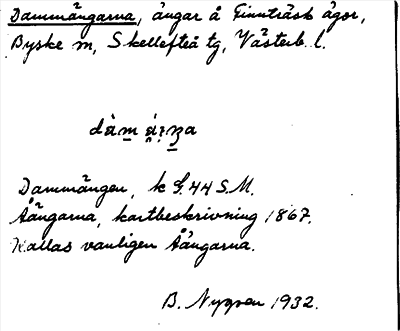 Dammängarna, ängar å Finnträsk ägor,
Byske sn, Skellefteå tg, Västerb. l.
Dammängen, k G.44 S.M.
Åängarna, kartbeskrivning 1867.
Kallas vanligen Åängarna.
B. Nygren 1932.